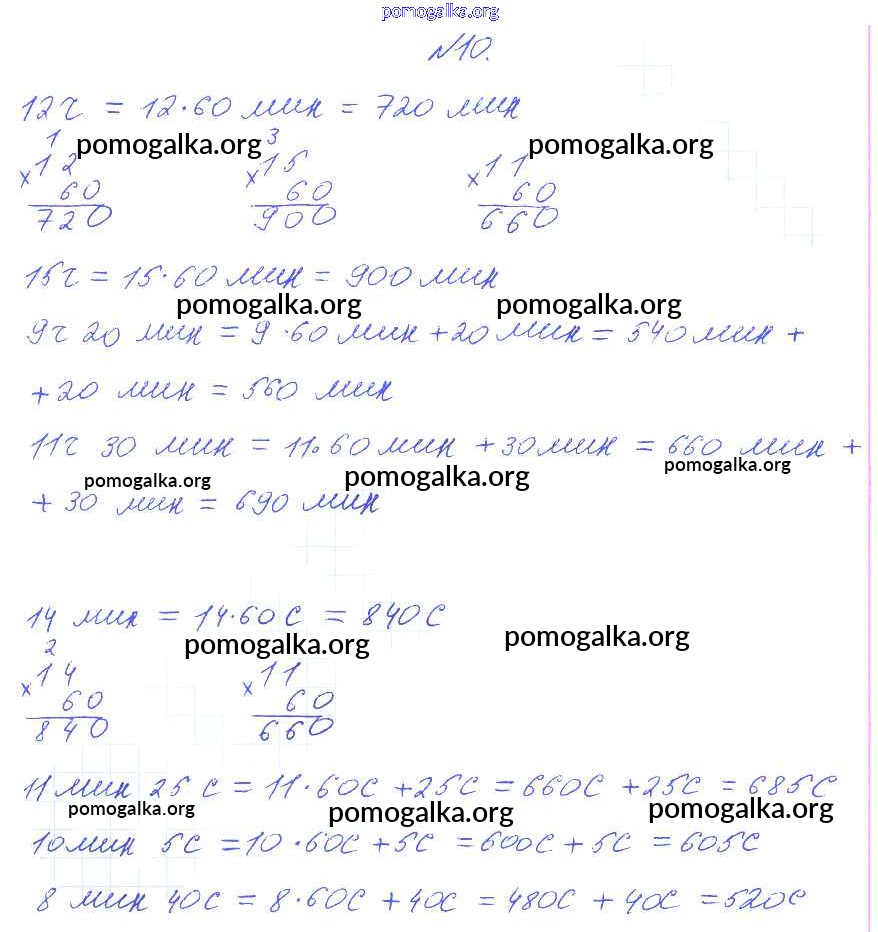 pomogalka.org
№10.
12ч = 12·60 мин = 720 мин
pomogalka.org
1 3
×12 ×15 ×11 pomogalka.org
60 60 60
720 900 660
15ч = 15·60 мин = 900 мин
pomogalka.org pomogalka.org
9ч 20 мин = 9·60 мин + 20 мин = 540 мин +
+ 20 мин = 560 мин
11ч 30 мин = 11·60 мин + 30 мин = 660 мин +
pomogalka.org pomogalka.org pomogalka.org
+ 30 мин = 690 мин
14 мин = 14·60 с = 840 с
pomogalka.org pomogalka.org
2
×14 ×11
60 60
840 660
11 мин 25 с = 11·60с + 25с = 660с + 25с = 685с
pomogalka.org pomogalka.org pomogalka.org
10мин 5с = 10·60с + 5с = 600с + 5с = 605с
8 мин 40с = 8·60с + 40с = 480с + 40с = 520с